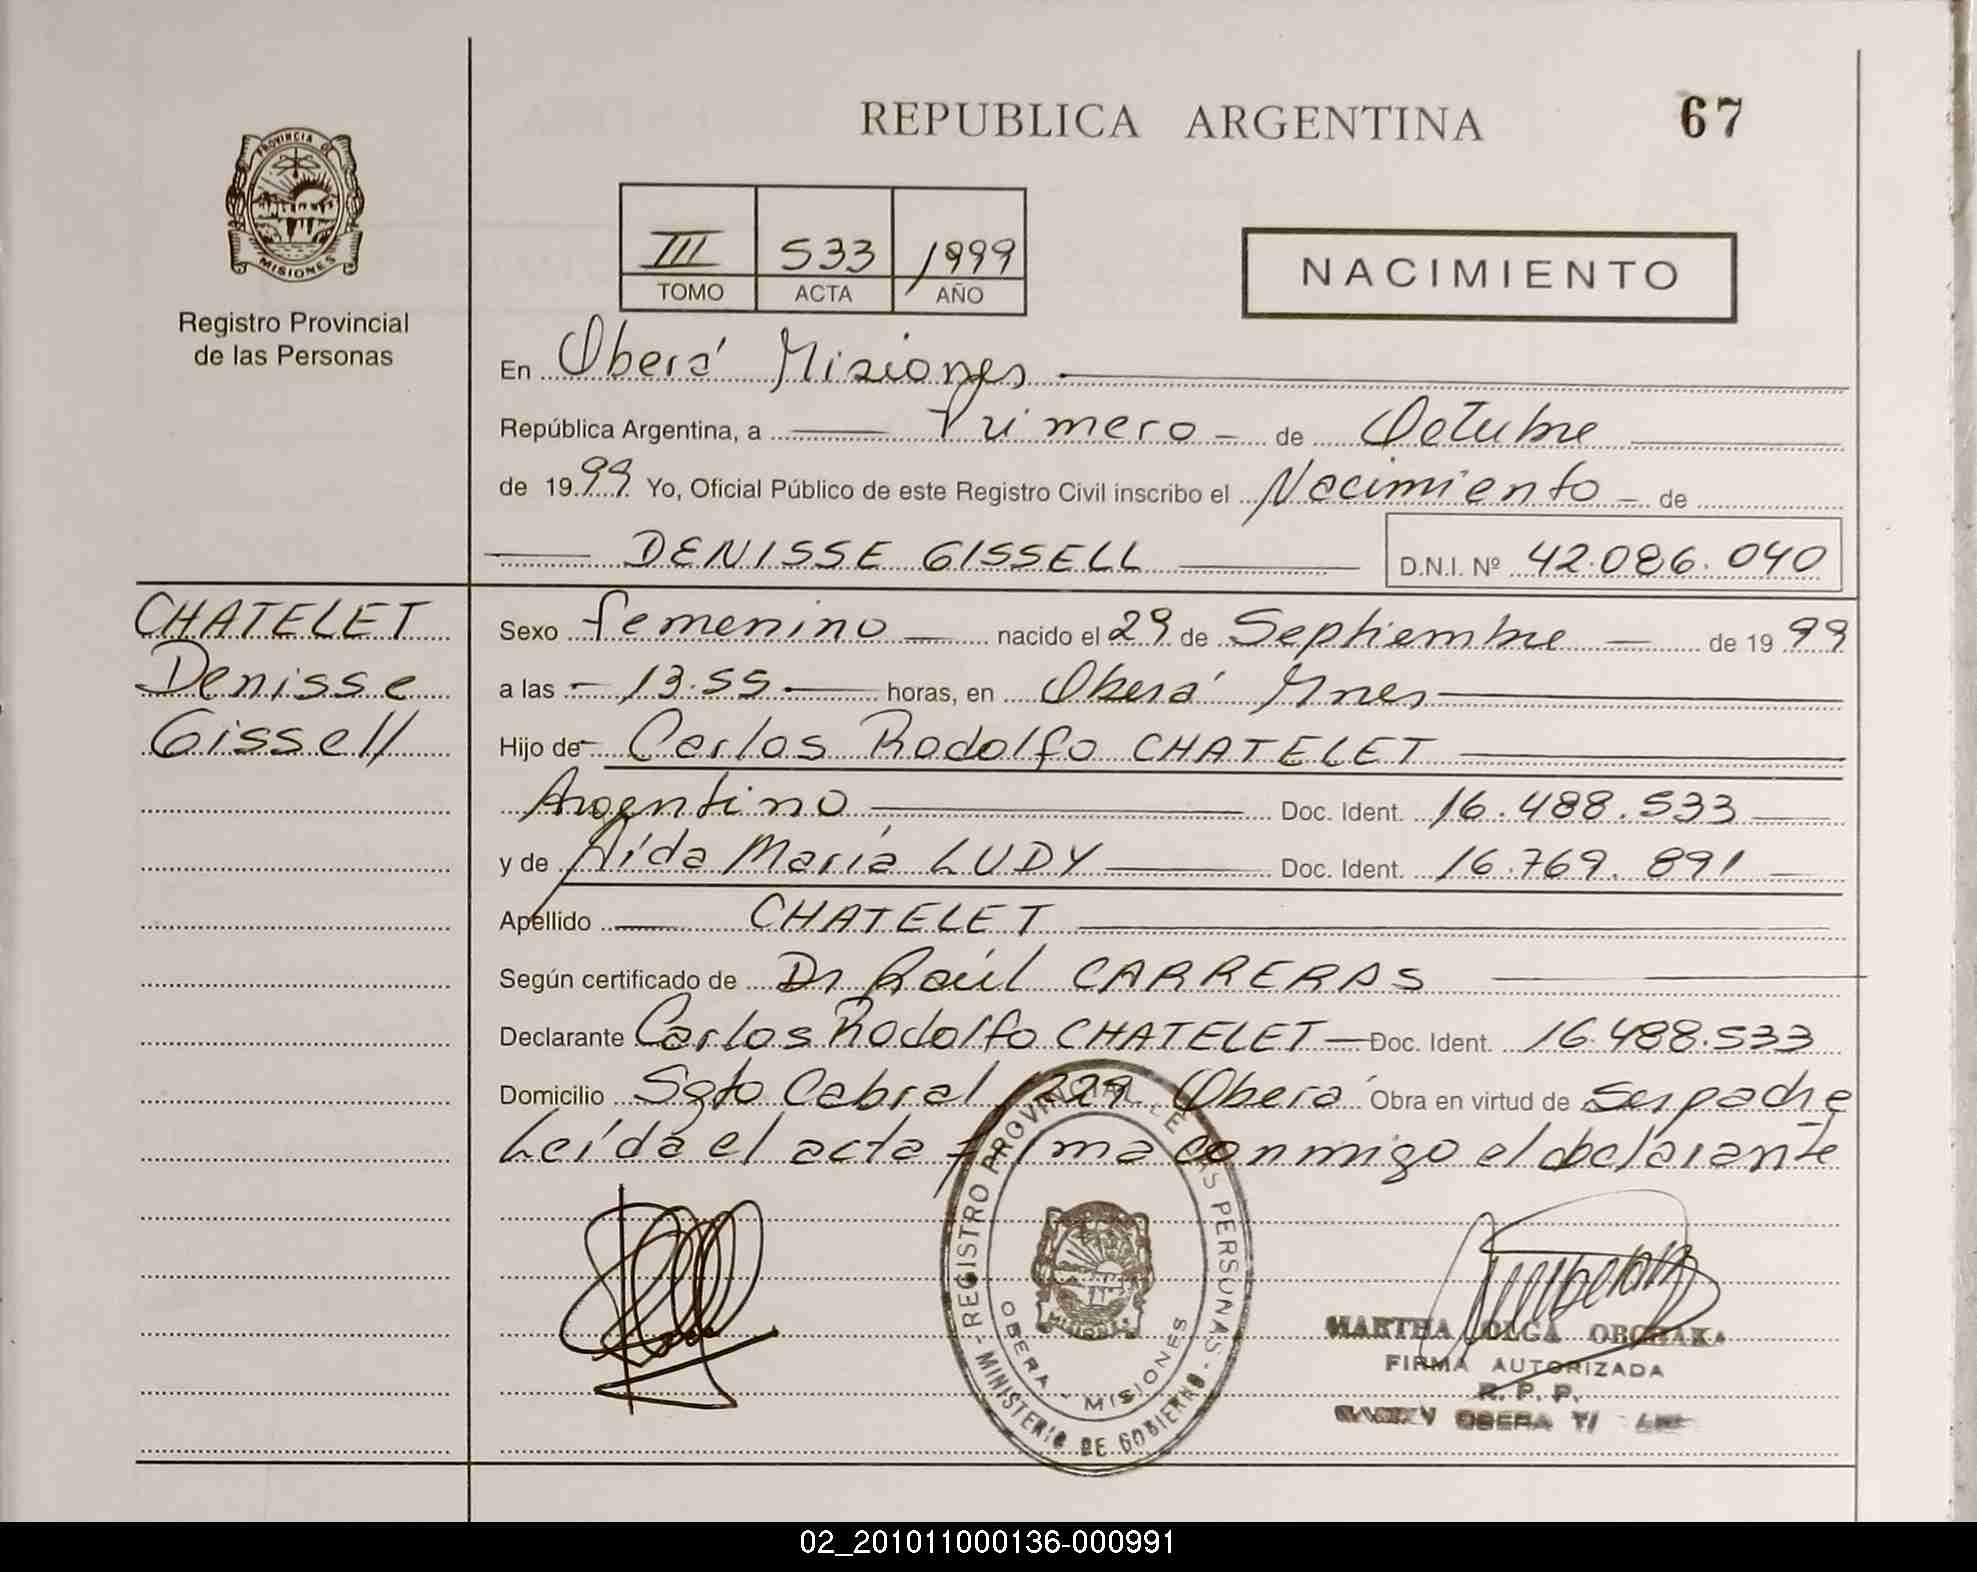 REPUBLICA ARGENTINA
67
PROVINCIA DE
MISIONES
Registro Provincial
de las Personas
III 533 1999
TOMO ACTA AÑO
NACIMIENTO
En Oberá Misiones
República Argentina, a Primero de Octubre
de 1999 Yo, Oficial Público de este Registro Civil inscribo el Nacimiento de
DENISSE GISSELL D.N.I. Nº 42.086.040
CHATELET
Denisse
Gissell
Sexo femenino nacido el 29 de Septiembre de 1999
a las 13.55 horas, en Oberá Mnes
Hijo de Carlos Rodolfo CHATELET
Argentino Doc. Ident. 16.488.533
y de Aída María LUDY Doc. Ident. 16.769.891
Apellido CHATELET
Según certificado de Dr Raúl CARRERAS
Declarante Carlos Rodolfo CHATELET Doc. Ident. 16.488.533
Domicilio Sgto Cabral 229 Oberá Obra en virtud de ser padre
Leída el acta firma conmigo el declarante
REGISTRO PROVINCIAL DE LAS PERSONAS
MINISTERIO DE GOBIERNO
OBERA - MISIONES
MISIONES
MARTHA OLGA
FIRMA AUTORIZADA
R. P. P.
OBERA
02_201011000136-000991